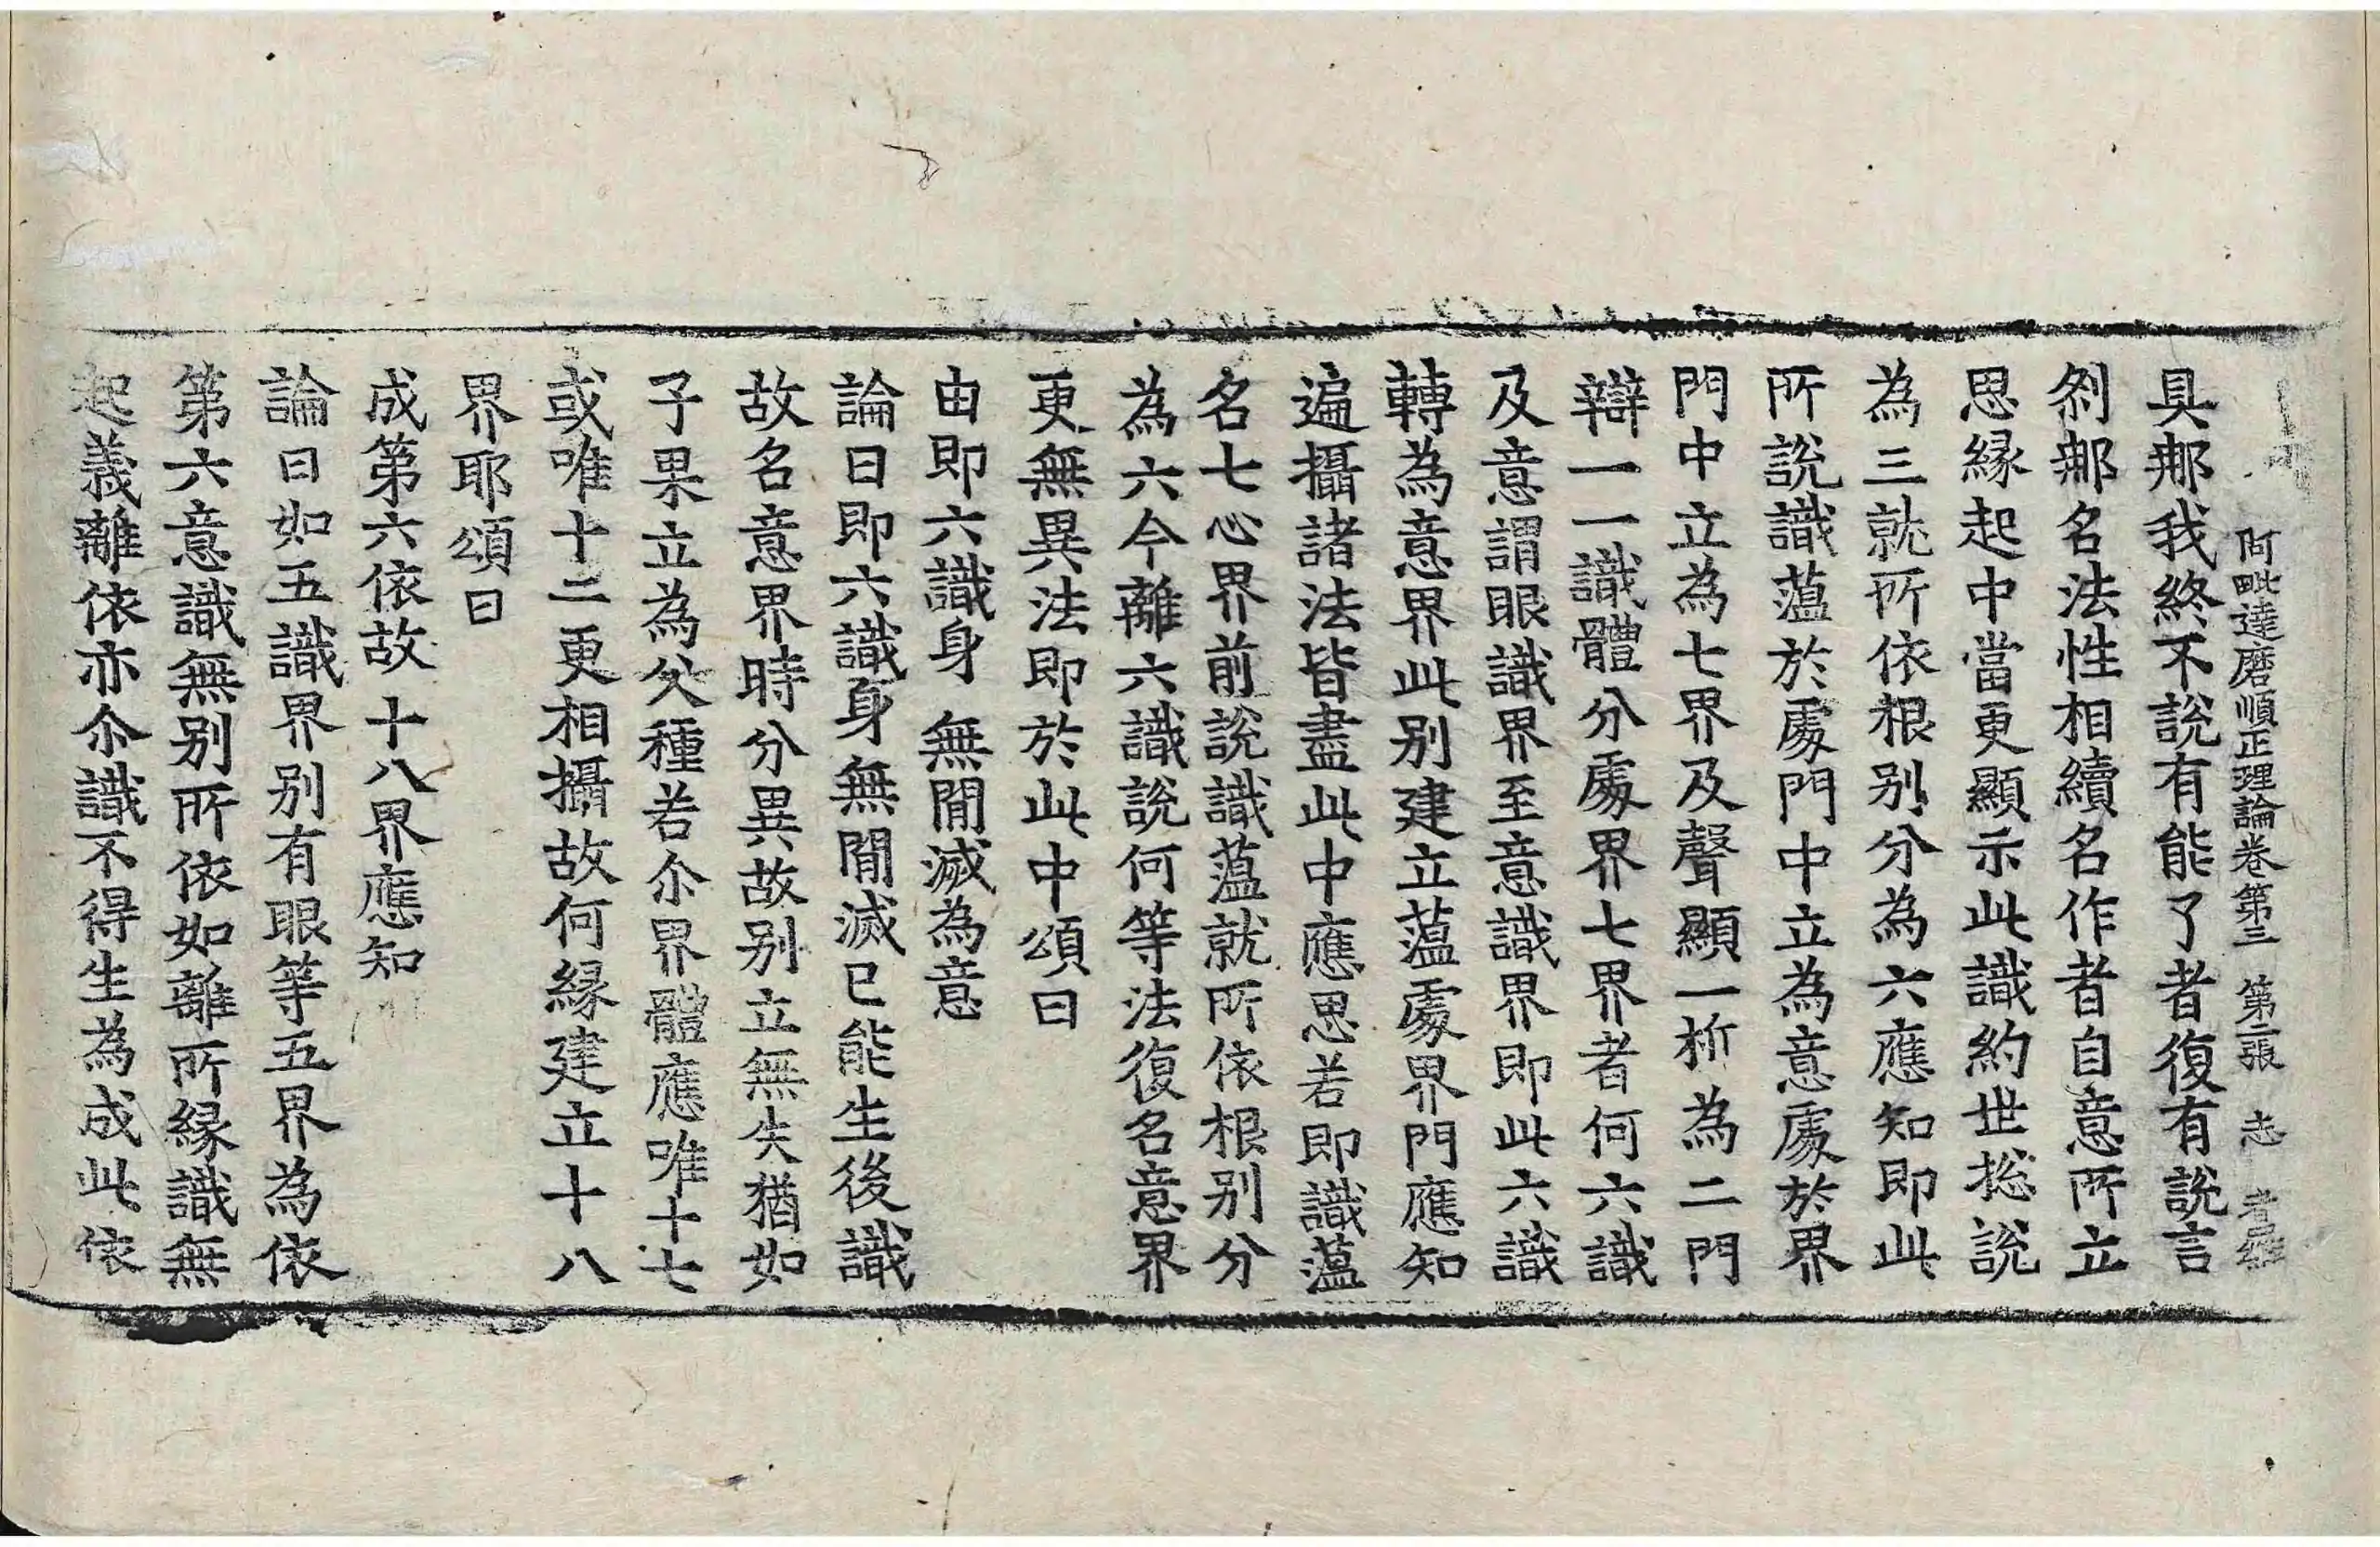 阿毗達磨順正理論卷第三 第二張 志
具那我終不說有能了者復有說言
刹那名法性相續名作者自意所立
思緣起中當更顯示此識約世揔說
為三就所依根別分為六應知即此
所說識蘊於處門中立為意處於界
門中立為七界及聲顯一析為二門
辯一一識體分處界七界者何六識
及意謂眼識界至意識界即此六識
轉為意界此別建立蘊處界門應知
遍攝諸法皆盡此中應思若即識蘊
名七心界前說識蘊就所依根別分
為六今離六識說何等法復名意界
更無異法即於此中頌曰
由即六識身 無間滅為意
論曰即六識身無間滅已能生後識
故名意界時分異故別立無失猶如
子果立為父種若尒界體應唯十七
或唯十二更相攝故何緣建立十八
界耶頌曰
成第六依故 十八界應知
論曰如五識界別有眼等五界為依
第六意識無別所依如離所緣識無
起義離依亦尒識不得生為成此依